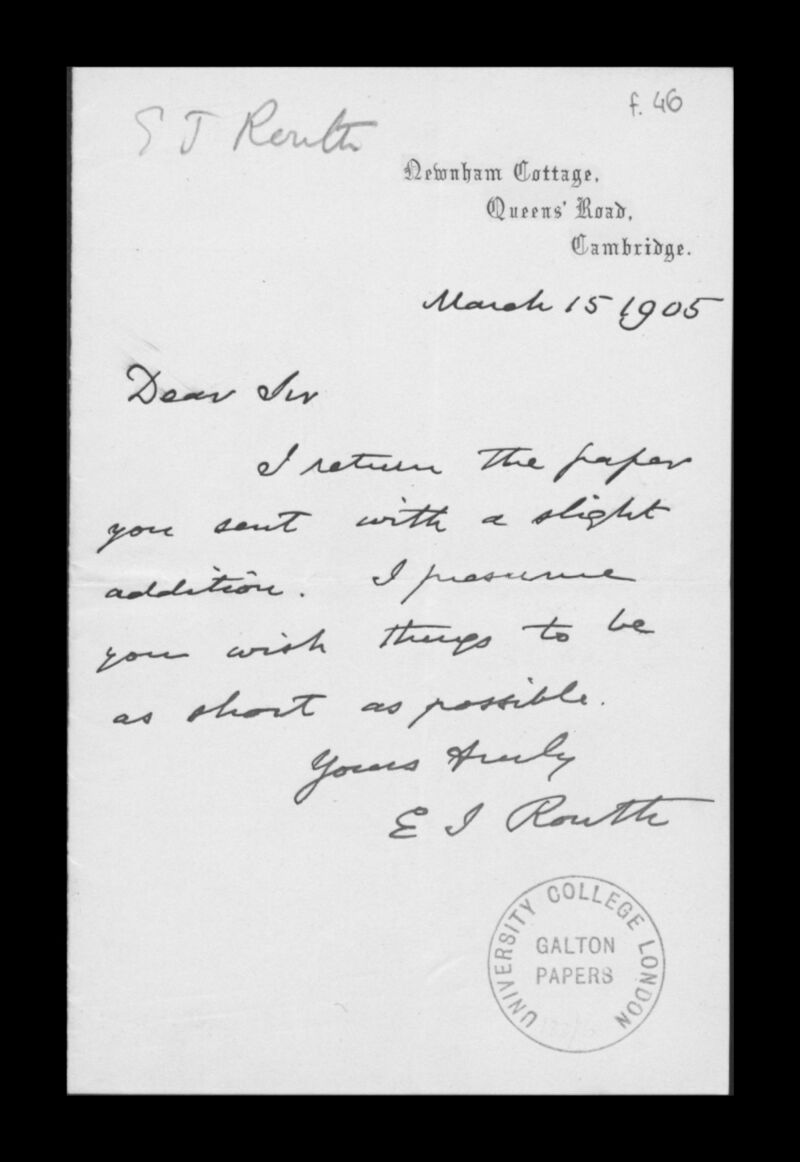 f. 46
E J Routh
Newnham Cottage,
Queens' Road,
Cambridge.
March 15 1905
Dear Sir
I return the paper
you sent with a slight
addition. I presume
you wish things to be
as short as possible.
Yours truly
E J Routh
UNIVERSITY COLLEGE LONDON
GALTON
PAPERS